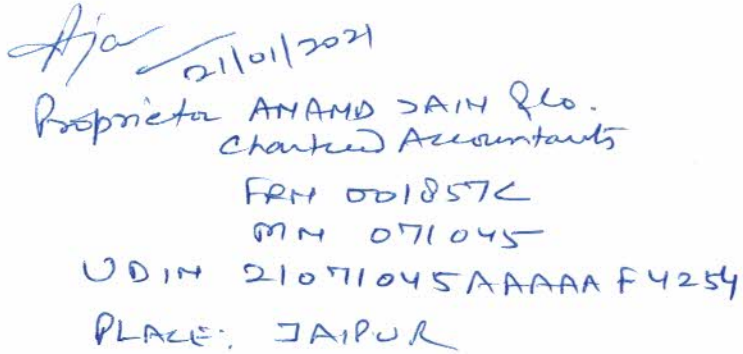 21/01/2021
Proprietor ANAND JAIN & Co.
Chartered Accountants
FRN 001857C
MN 071045
UDIN 21071045AAAAAF4254
PLACE: JAIPUR